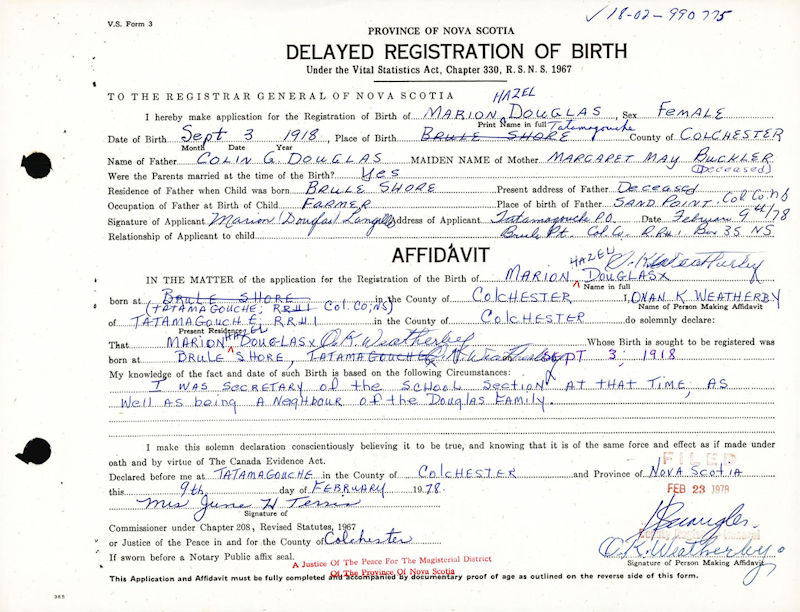 ✓18-02-990775
V.S. Form 3
PROVINCE OF NOVA SCOTIA
DELAYED REGISTRATION OF BIRTH
Under the Vital Statistics Act, Chapter 330, R.S.N.S. 1967
TO THE REGISTRAR GENERAL OF NOVA SCOTIA
HAZEL
I hereby make application for the Registration of Birth of MARION DOUGLAS, Sex FEMALE
Print Name in full Tatamagouche
Date of Birth Sept 3 1918, Place of Birth BRULE SHORE County of COLCHESTER
Month Date Year
Name of Father COLIN G. DOUGLAS MAIDEN NAME of Mother MARGARET MAY BUCKLER
(Deceased)
Were the Parents married at the time of the Birth? Yes
Residence of Father when Child was born BRULE SHORE Present address of Father Deceased
Occupation of Father at Birth of Child FARMER Place of birth of Father SAND POINT, Col Co. NS
Signature of Applicant Marion (Douglas) Langille Address of Applicant Tatamagouche P.O. Date February 9th/78
Relationship of Applicant to child Brule Pt. Col. Co. R.R.#1 Box 35 NS
AFFIDAVIT
HAZEL O.K. Weatherby
IN THE MATTER of the application for the Registration of the Birth of MARION DOUGLAS x
Name in full
born at BRULE SHORE in the County of COLCHESTER I, ONAN K WEATHERBY
(TATAMAGOUCHE, RR#1 Col. Co, NS) Name of Person Making Affidavit
of TATAMAGOUCHE RR#1 in the County of COLCHESTER do solemnly declare:
Present Residence
HAZEL
That MARION DOUGLAS x O.K. Weatherby Whose Birth is sought to be registered was
born at BRULE SHORE, TATAMAGOUCHE O.K. Weatherby SEPT 3, 1918
My knowledge of the fact and date of such Birth is based on the following Circumstances:
I WAS SECRETARY OF the SCHOOL SECTION AT THAT TIME, AS
Well AS being A Neghbour of the Douglas Family.
I make this solemn declaration conscientiously believing it to be true, and knowing that it is of the same force and effect as if made under
oath and by virtue of The Canada Evidence Act.
FILED
Declared before me at TATAMAGOUCHE in the County of COLCHESTER and Province of NOVA SCOTIA
this 9th day of FEBRUARY 1978.
FEB 23 1978
Mrs June H
Signature of
Commissioner under Chapter 208, Revised Statutes, 1967
or Justice of the Peace in and for the County of Colchester
If sworn before a Notary Public affix seal.
O.K. Weatherby
Signature of Person Making Affidavit
A Justice Of The Peace For The Magisterial District
Of The Province Of Nova Scotia
This Application and Affidavit must be fully completed and accompanied by documentary proof of age as outlined on the reverse side of this form.